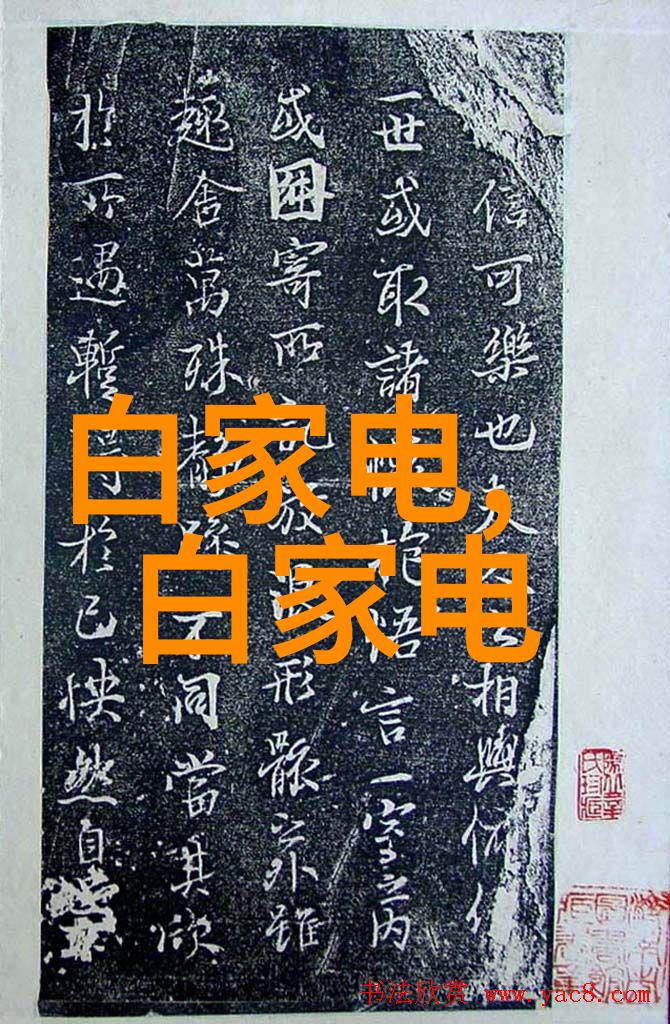 信可樂也夫人之相與俯仰
一世或取諸懷抱悟言一室之内
或因寄所託放浪形骸之外雖
趣舍萬殊靜躁不同當其欣
於所遇暫得於己快然自
白家电,
白家电
书法欣赏 www.yac8.com